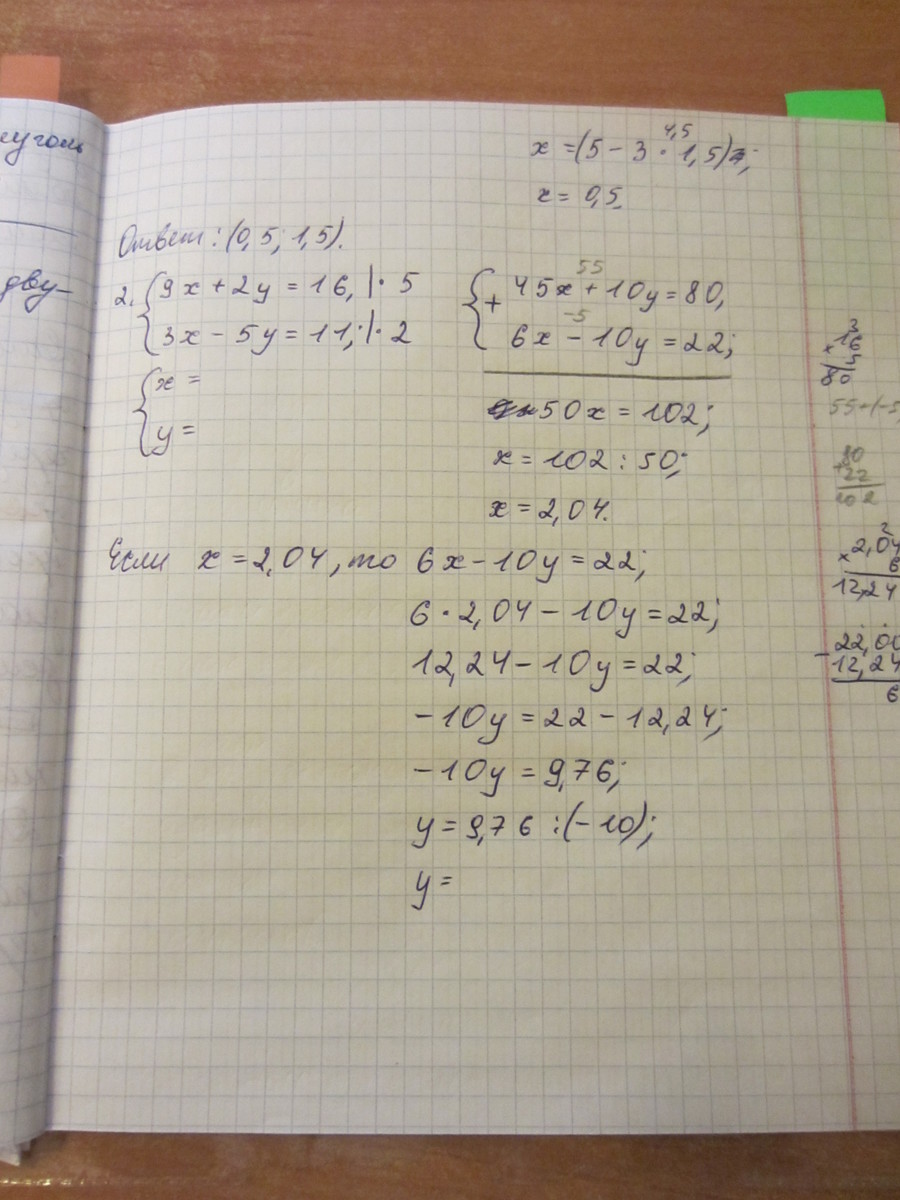 еуголь
дву-
x = (5 - 3 · 1,5);
4,5
x = 0,5.
Ответ: (0,5; 1,5).
2. { 9x + 2y = 16, | · 5
3x - 5y = 11; | · 2
{ x =
y =
{ + 45x + 10y = 80,
55
6x - 10y = 22;
-5
50x = 102;
x = 102 : 50;
x = 2,04.
Если x = 2,04, то 6x - 10y = 22;
6 · 2,04 - 10y = 22;
12,24 - 10y = 22;
-10y = 22 - 12,24;
-10y = 9,76;
y = 9,76 : (-10);
y =
3
× 16
5
80
55+(-5
80
+ 22
102
2
× 2,04
6
12,24
- 22,00
12,24
6